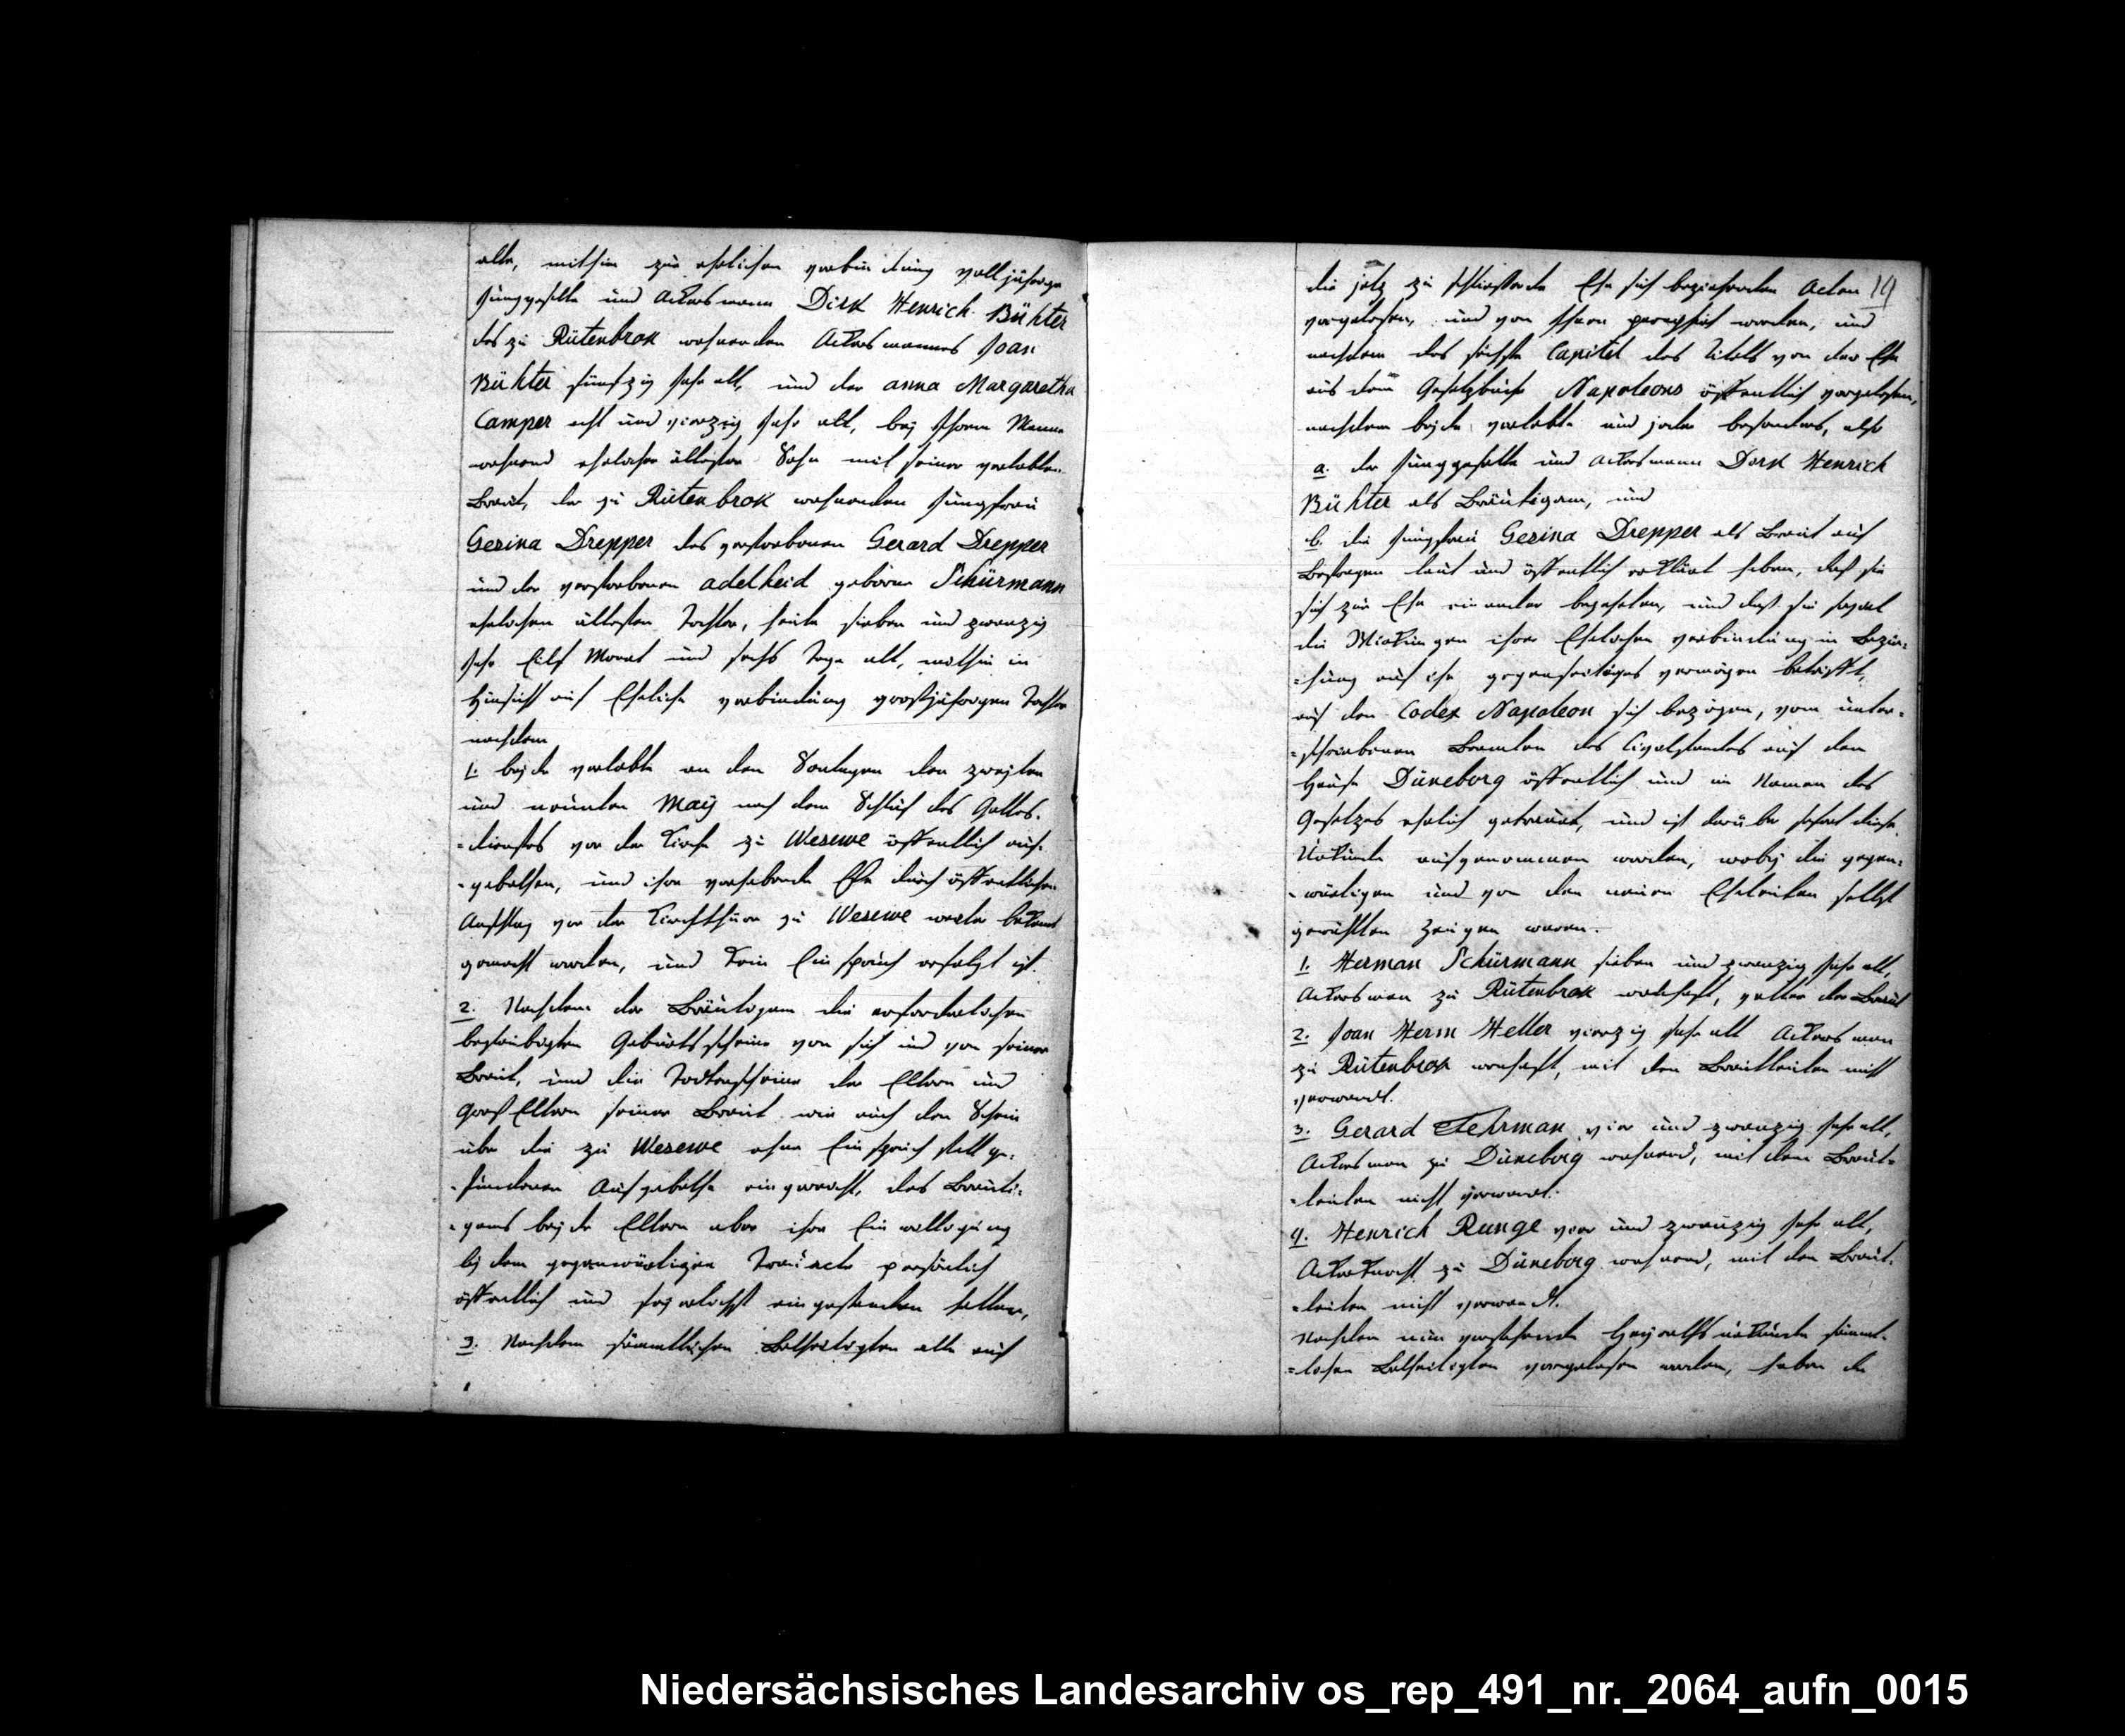 alte, mithin zur ehelichen verbindung volljährige
Junggeselle und Ackersmann Dirk Henrich Bühter
des zu Rütenbrok wohnenden Ackersmannes Joan
Bühter fünfzig Jahr alt, und der anna Margaretha
Camper acht und vierzig Jahr alt, bey Ihrem Manne
wohnend ehelicher ältester Sohn mit seiner verlobten
Braut, der zu Rütenbrok wohnenden Jungfrau
Gesina Drepper des verstorbenen Gerard Drepper
und der verstorbenen adelheid geborne Schürmann
ehelichen ältesten Tochter, heute sieben und zwanzig
Jahr Eilf Monat und sechs Tage alt, mithin in
Hinsicht auf Eheliche verbindung grosjährigen Tochter
nachdem
1. beyde verlobte an den Sontagen den zweyten
und neunten Maÿ nach dem Schluß des Gottes-
-dienstes vor der Kirche zu Wesuwe öffentlich auf-
-gebothen, und ihre vorhabende Ehe durch öffentlichen
Anschlag vor der Kirchthüre zu Wesuwe bekant
gemacht worden, und kein Einspruch erfolgt ist.
2. Nachdem der Bräutigam die erforderlichen
beglaubigten Geburtsscheine von sich und von seiner
Braut, und die Todtenscheine der Eltern und
GrosEltern seiner Braut wie auch den Schein
über die zu Wesuwe ohne Einspruch statt ge-
-fundenen Aufgebothe eingereicht, des Bräuti-
-gams beyde Eltern aber ihre Einwilligung
bey dem gegenwärtigen Trauacte persönlich
öffentlich und feyerlichst eingestanden hatten,
3. Nachdem sämmtlichen Betheiligten alle auf
14
die jetz zu schliessende Ehe sich beziehenden Acten
vorgelesen, und von Ihnen worden, und
nachdem das sechste Capitel des Titels von der Ehe
aus dem Gesetzbuche Napoleons öffentlich vorgelesen,
nachdem beyde verlobte und jeder besonders, also
a. der Junggeselle und Ackersmann Derk Henrich
Bühter als Bräutigam, und
b. die Jungfrau Gesina Drepper als Braut auf
Befragen laut und öffentlich erklärt haben, daß sie
sich zur Ehe einander begehrten, und daß sie soviel
die Wirkungen ihrer Ehelichen verbindung in Bezie-
-hung auf ihr gegenseitiges vermögen betrifft,
auf den Codex Napoleon sich bezögen, vom unter-
-schriebenen Beamten des Civilstandes auf dem
Hause Düneborg öffentlich und im Namen des
Gesetzes ehelich getrauet, und ist darüber sofort diese
Urkunde aufgenommen worden, wobey die gegen-
-wärtigen und von den neuen Eheleuten selbst
gewählten Zeugen waren.
1. Herman Schürmann sieben und zwanzig Jahr alt,
Ackersman zu Rütenbrok wohnhaft, vetter der Braut
2. Joan Herm Heller vierzig Jahr alt Ackersman
zu Rütenbrok wonhaft, mit den Brautleuten nicht
verwandt.
3. Gerard Fehrman vier und zwanzig Jahr alt,
Ackersman zu Düneborg wohnend, mit dem Braut-
-leuten nicht verwandt.
4. Henrich Runge vier und zwanzig Jahr alt,
Ackerknecht zu Düneborg wohnend, mit den Braut-
-leuten nicht verwandt.
Nachdem nun vorstehende Heyrathsurkunde sämmt-
-lichen Betheiligten vorgelesen worden, haben die
Niedersächsisches Landesarchiv os_rep_491_nr._2064_aufn_0015